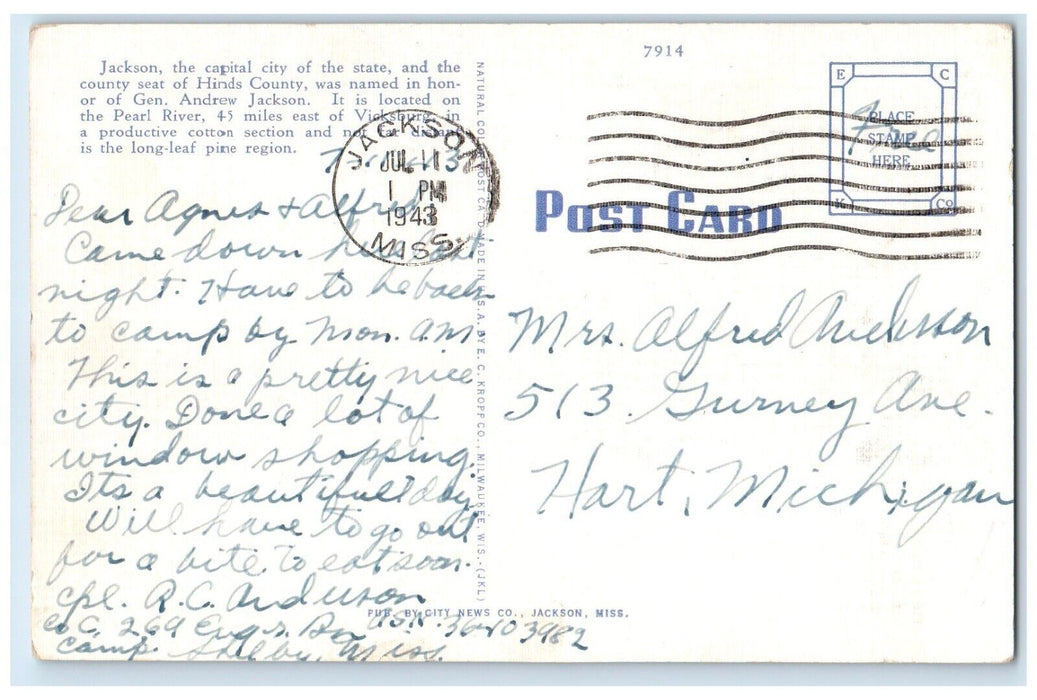 Jackson, the capital city of the state, and the
county seat of Hinds County, was named in hon-
or of Gen. Andrew Jackson. It is located on
the Pearl River, 45 miles east of Vicksburg, in
a productive cotton section and not
is the long-leaf pine region.
Dear Agnes & Alfred
Came down here last
night. Have to be back
to camp by Mon. A.M.
This is a pretty nice
city. Done a lot of
window shopping.
Its a beautifull day
Will have to go out
for a bite to eat soon.
Cpl. R.C. Anderson
Co C. 269 Engs. Bn ASN. 36403982
Camp. Shelby, Miss.
JACKSON
JUL 11
1 PM
1943
MISS.
NATURAL COLOR POST CARD MADE IN U.S.A. BY E. C. KROPP CO., MILWAUKEE, WIS.-(JKL)
7914
E C
PLACE
STAMP
HERE
K Co
Free
POST CARD
Mrs. Alfred Anderson
513 Gurney Ave.
Hart, Michigan
PUB. BY CITY NEWS CO., JACKSON, MISS.